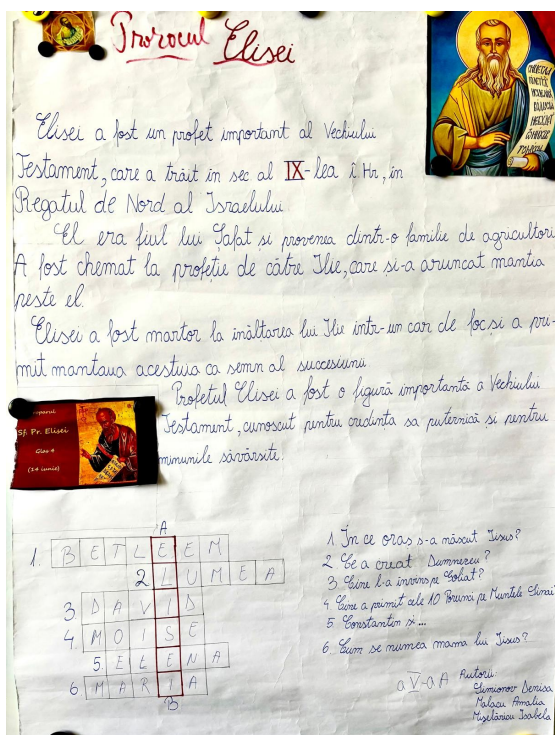 Prorocul Elisei
Elisei a fost un profet important al Vechiului
Testament, care a trăit în sec al IX-lea î Hr, în
Regatul de Nord al Israelului.
El era fiul lui Șafat si provenea dintr-o familie de agricultori
A fost chemat la profeție de către Ilie, care și-a aruncat mantia
peste el.
Elisei a fost martor la înălțarea lui Ilie într-un car de foc si a pri-
mit mantaua acestuia ca semn al succesiunii
Profetul Elisei a fost o figură importantă a Vechiului
Testament, cunoscut pentru credința sa puternică si pentru
minunile săvârsite.
Troparul
Sf. Pr. Elisei
Glas 4
(14 iunie)
A
1. BETLEEM
2 LUMEA
3 DAVID
4. MOISE
5. ELENA
6 MARIA
B
1. În ce oraș s-a născut Iisus?
2 Ce a creat Dumnezeu?
3. Cine l-a învins pe Goliat?
4 Cine a primit cele 10 Porunci pe Muntele Sinai
5 Constantin și ...
6. Cum se numea mama lui Iisus?
a V-a A
Autorii:
Simionov Denisa
Malacu Amalia
Mușelăriou Isabela